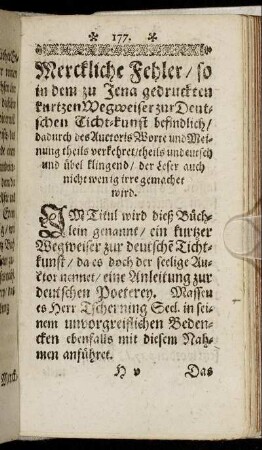 * 177. *
Merckliche Fehler / so
in dem zu Jena gedruckten
kurtzen Wegweiser zur Deut-
schen Ticht-kunst befindlich /
dadurch des Auctoris Worte und Mei-
nung theils verkehret / theils undeutsch
und übel klingend / der Leser auch
nicht wenig irre gemachet
wird.
IM Titul wird dieß Büch-
lein genannt / ein kurtzer
Wegweiser zur deutsche Ticht-
kunst / da es doch der seelige Au-
ctor nennet / eine Anleitung zur
deutschen Poeterey. Massen
es Herr Tscherning Sed. in sei-
nem unvorgreiflichen Beden-
cken ebenfalls mit diesem Nah-
men anführet.
H v Das